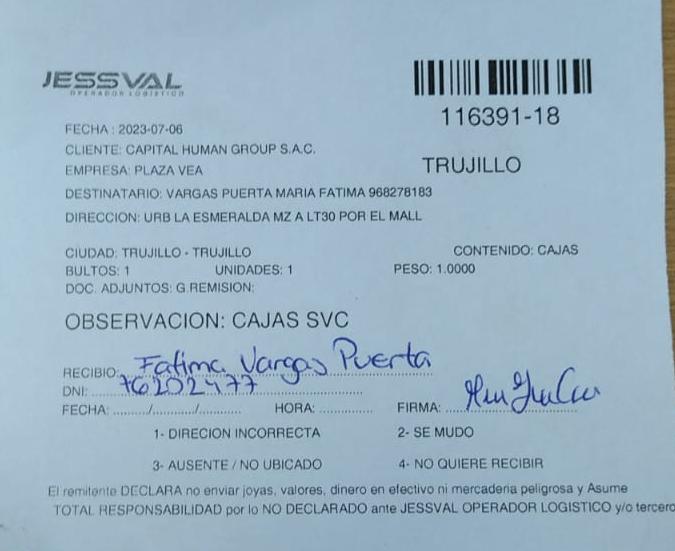 JESSVAL
OPERADOR LOGISTICO
116391-18
FECHA : 2023-07-06
CLIENTE: CAPITAL HUMAN GROUP S.A.C.
EMPRESA: PLAZA VEA
TRUJILLO
DESTINATARIO: VARGAS PUERTA MARIA FATIMA 968278183
DIRECCION: URB LA ESMERALDA MZ A LT30 POR EL MALL
CIUDAD: TRUJILLO - TRUJILLO CONTENIDO: CAJAS
BULTOS: 1 UNIDADES: 1 PESO: 1.0000
DOC. ADJUNTOS: G.REMISION:
OBSERVACION: CAJAS SVC
RECIBIO: Fatima Vargas Puerta
DNI: 76202477
FECHA: ........./........./........... HORA: .............. FIRMA:
1- DIRECION INCORRECTA 2- SE MUDO
3- AUSENTE / NO UBICADO 4- NO QUIERE RECIBIR
El remitente DECLARA no enviar joyas, valores, dinero en efectivo ni mercaderia peligrosa y Asume
TOTAL RESPONSABILIDAD por lo NO DECLARADO ante JESSVAL OPERADOR LOGISTICO y/o tercero